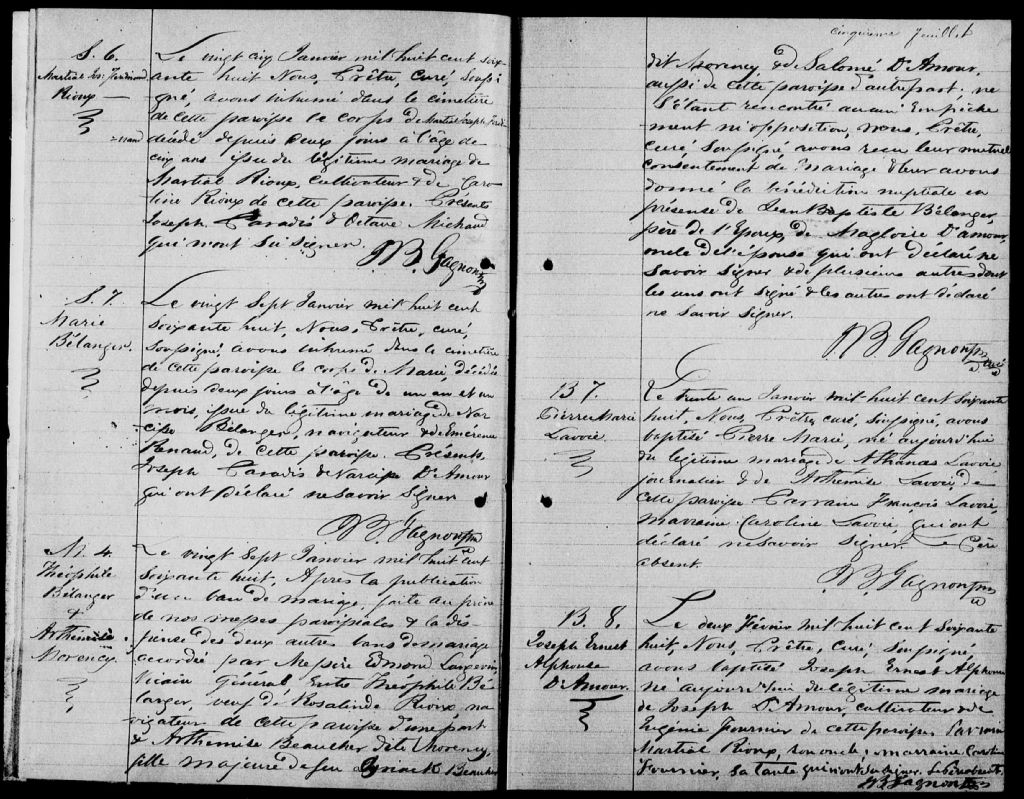 S. 6.
Martial Jos: Ferdinand
Rioux
Le vingt cinq Janvier mil huit cent soix-
ante huit Nous, Prêtre, curé, soussi-
gné, avons inhumé dans le cimetière
de cette paroisse le corps de Martial Joseph Ferdi-
=nand
décédé depuis deux jours à l'âge de
cinq ans issu du légitime mariage de
Martial Rioux, Cultivateur & de Caro-
line Rioux de cette paroisse. Présents
Joseph Paradis & Octave Michaud
qui n'ont su signer.
JB. Gagnon ptre
S. 7.
Marie
Bélanger.
Le vingt sept Janvier mil huit cent
soixante huit, Nous, Prêtre, curé,
soussigné, avons inhumé dans le cimetière
de cette paroisse le corps de Marie, décédée
depuis deux jours à l'âge de un an et un
mois, issue du légitime mariage de Nar-
cisse Bélanger, navigateur & de Emérence
Renaud, de cette paroisse. Présents
Joseph Paradis & Narcisse D'Amour
qui ont déclaré ne savoir signer
JB. Gagnon ptre
M. 4.
Théophile
Bélanger
&
Arthémise
Morency.
Le vingt sept Janvier mil huit cent
soixante huit, Après la publication
d'un ban de mariage, faite au prône
de nos messes paroissiales & la dis-
pense des deux autres bans de mariage
accordée par Messire Edmond Langevin
Vicaire Général, Entre Théophile Bé-
langer, veuf de Rosalinde Rioux na-
vigateur de cette paroisse d'une part
& Arthémise Beaucher dite Morency,
fille majeure de feu Beaucher
cinquième feuillet
dit Morency & de Salomé D'Amour,
aussi de cette paroisse d'autre part; ne
s'étant rencontré aucun Empêche-
ment ni opposition, nous, Prêtre,
curé soussigné avons reçu leur mutuel
consentement de mariage & leur avons
donné la bénédiction nuptiale en
présence de Jean Baptiste Bélanger,
père de l'Epoux, de Magloire D'amour,
oncle de l'épouse qui ont déclaré ne
savoir signer & de plusieurs autres dont
les uns ont signé & les autres ont déclaré
ne savoir signer.
JB Gagnon ptre
curé
B 7.
Pierre Marie
Lavoie
Le trente un Janvier mil huit cent soixante
huit, Nous, Prêtre, curé, soussigné, avons
baptisé Pierre Marie, né aujourd'hui
du légitime mariage de Athanas Lavoie
journalier & de Arthémise Lavoie, de
cette paroisse Parrain François Lavoie,
marraine Caroline Lavoie qui ont
déclaré ne savoir signer. Le Père
absent.
JB Gagnon ptre
B. 8.
Joseph Ernest
Alphonse
D'Amour.
Le deux Février mil huit cent soixante
huit, Nous, Prêtre, curé, soussigné,
avons baptisé Joseph Ernest Alphonse
né aujourd'hui du légitime mariage
de Joseph D'Amour, cultivateur & de
Eugénie Fournier de cette paroisse Parrain
Martial Rioux, son oncle; marraine Caroline
Fournier, sa tante qui n'ont su signer. Le Père absent.
JB Gagnon ptre